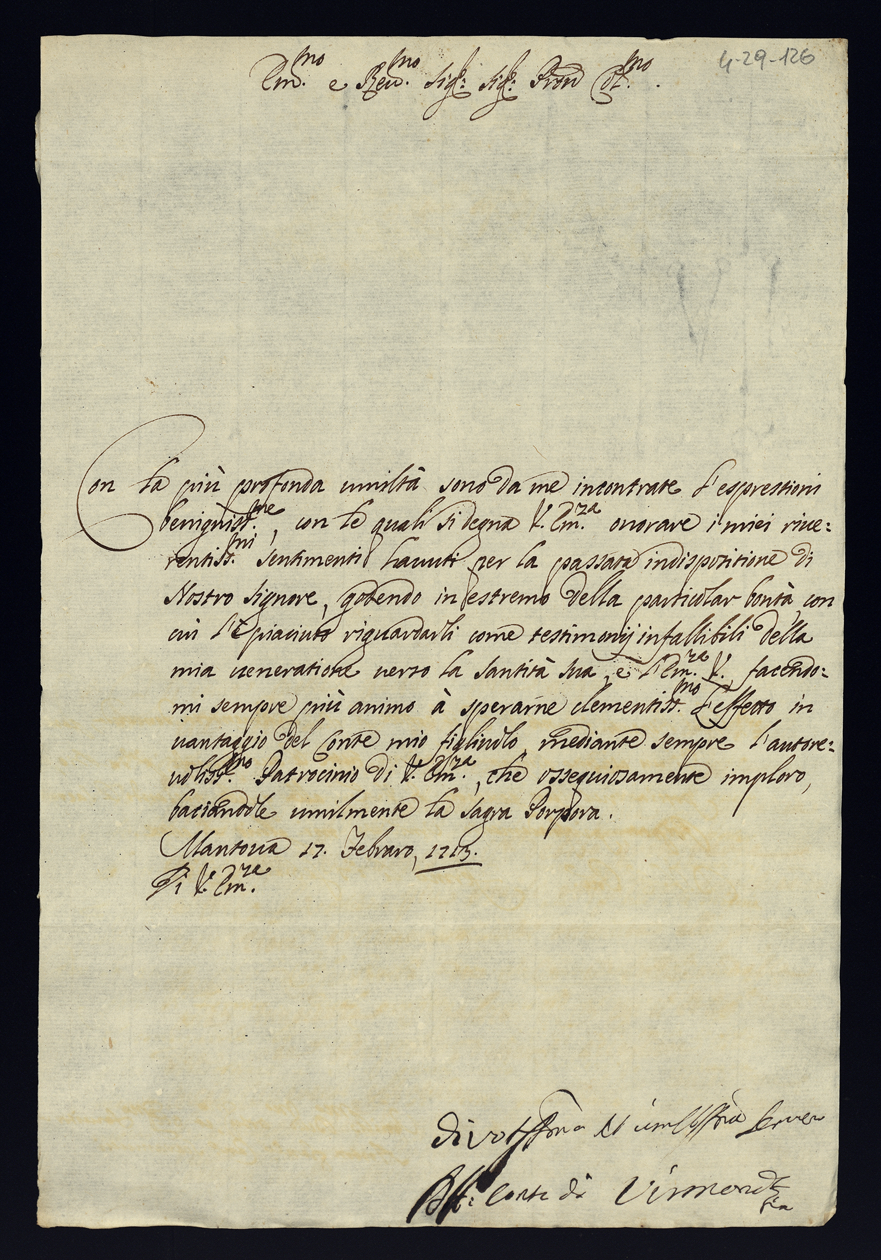 4-29-126
Em.mo e Rev.mo Sig.r Sig.r Pron Col.mo.
Con la più profonda umiltà sono da me incontrate l'espressioni
benigniss.me, con le quali si degna V. Em.za onorare i miei rive=
rentiss.mi sentimenti havuti per la passata indispozitione di
Nostro Signore, godendo in estremo della particolar bontà, con
cui l'è piaciuto riguardarli come testimonij infallibili della
mia veneratione verso la Santità Sua, e l'Em.za V., facendo=
mi sempre più animo à sperarne clementiss.mo l'effetto in
vantaggio del Conte mio figliuolo, mediante sempre l'autore=
voliss.mo Patrocinio di V. Em.za, che ossequiosamente imploro,
baciandole umilmente la Sagra Porpora.
Mantova 17. Febraro, 1713.
Di V. Em.za
Conte di Virmond